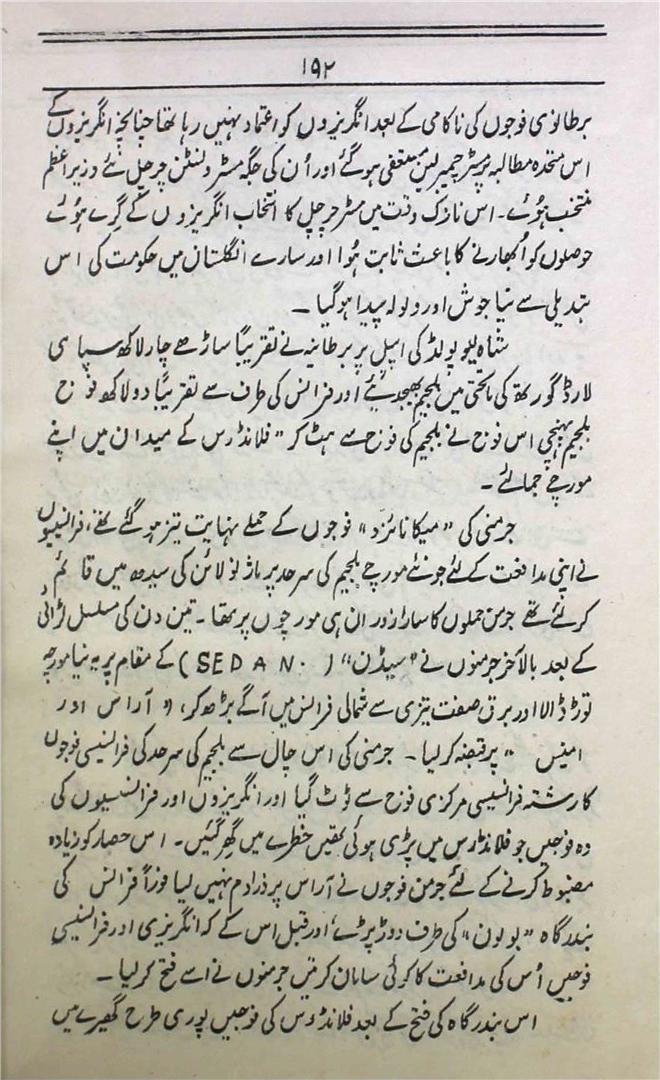 ۱۹۲
برطانوی فوجوں کی ناکامی کے بعد انگریزوں کو اعتماد نہیں رہا تھا چنانچہ انگریزوں کے
اس متحدہ مطالبہ پر مسٹر چمبرلین مستعفی ہو گئے اور اُن کی جگہ مسٹر ونسٹن چرچل نئے وزیر اعظم
منتخب ہوئے۔ اس نازک وقت میں مسٹر چرچل کا انتخاب انگریزوں کے گرے ہوئے
حوصلوں کو اُبھارنے کا باعث ثابت ہُوا اور سارے انگلستان میں حکومت کی اس
تبدیلی سے نیا جوش اور ولولہ پیدا ہو گیا ۔
شاہ لیوپولڈ کی اپیل پر برطانیہ نے تقریباً ساڑھے چار لاکھ سپاہی
لارڈ گورٹ کی ماتحتی میں بلجیم بھیجدیئے اور فرانس کی طرف سے تقریباً دو لاکھ فوج
بلجیم پہنچی اس فوج نے بلجیم کی فوج سے ہٹ کر "فلانڈرس کے میدان میں اپنے
مورچے جمائے ۔
جرمنی کی "میکانائزڈ" فوجوں کے حملے نہایت تیز ہو گئے تھے، فرانسیسیوں
نے اپنی مدافعت کے لئے جو نئے مورچے بلجیم کی سرحد پر ماژنو لائن کی سیدھ میں قائم
کر لئے تھے جرمن حملوں کا سارا زور ان ہی مورچوں پر تھا ۔ تین دن کی مسلسل لڑائی
کے بعد بالآخر جرمنوں نے "سیڈن" (SEDAN.) کے مقام پر یہ نیا مورچہ
توڑ ڈالا اور برق صفت تیزی سے شمالی فرانس میں آگے بڑھ کر، "آراس اور
امینس" پر قبضہ کر لیا ۔ جرمنی کی اس چال سے بلجیم کی سرحد کی فرانسیسی فوجوں
کا رشتہ فرانسیسی مرکزی فوج سے ٹوٹ گیا اور انگریزوں اور فرانسیسیوں کی
وہ فوجیں جو فلانڈرس میں پڑی ہوئی تھیں خطرے میں گھر گئیں۔ اس حصار کو زیادہ
مضبوط کرنے کے لئے جرمن فوجوں نے آراس پر ذرا دم نہیں لیا فوراً فرانس کی
بندرگاہ "بولون" کی طرف دوڑ پڑے، اور قبل اس کے کہ انگریزی اور فرانسیسی
فوجیں اُس کی مدافعت کا کوئی سامان کرتیں جرمنوں نے اسے فتح کر لیا ۔
اس بندرگاہ کی فتح کے بعد فلانڈرس کی فوجیں پوری طرح گھیرے میں